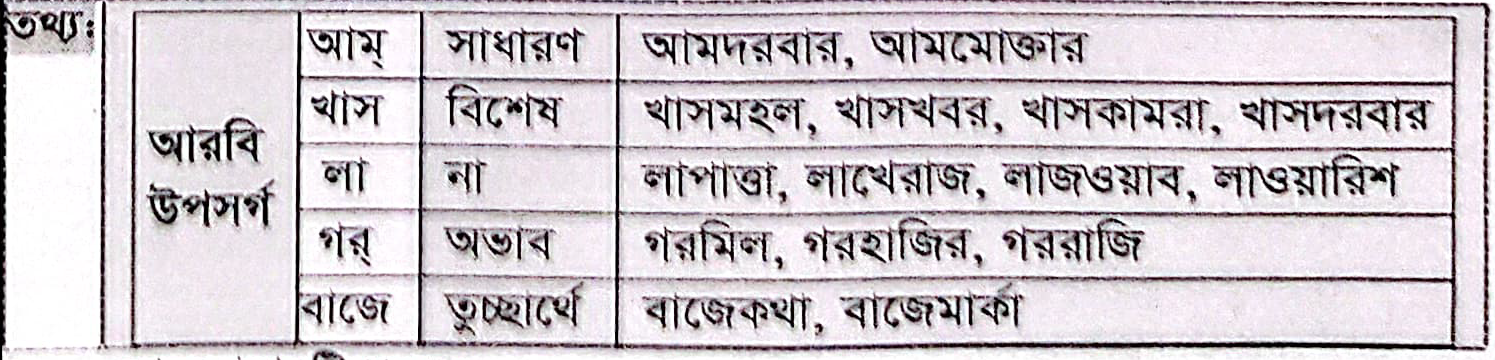 তথ্য:
আরবি উপসর্গ
আম্ সাধারণ আমদরবার, আমমোক্তার
খাস বিশেষ খাসমহল, খাসখবর, খাসকামরা, খাসদরবার
লা না লাপাত্তা, লাখেরাজ, লাজওয়াব, লাওয়ারিশ
গর্ অভাব গরমিল, গরহাজির, গররাজি
বাজে তুচ্ছার্থে বাজেকথা, বাজেমার্কা